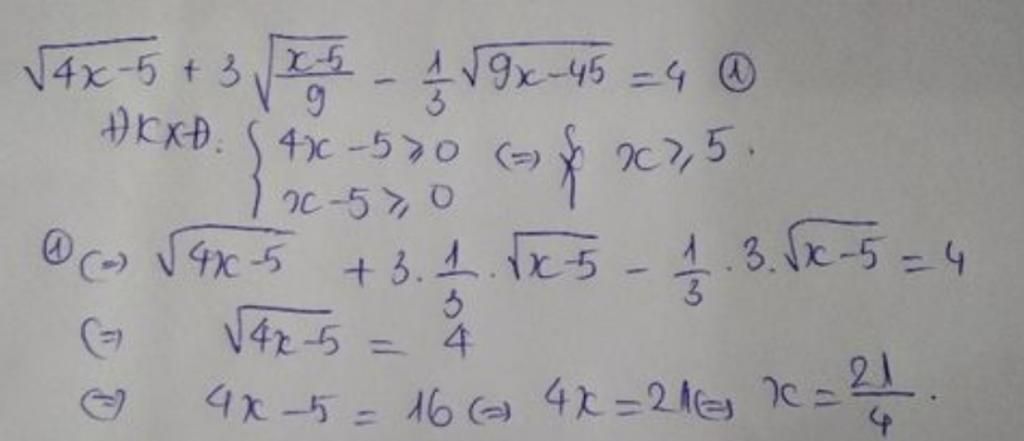 √(4x-5) + 3√((x-5)/9) - 1/3 √(9x-45) = 4 ①
ĐKXĐ: { 4x-5 ≥ 0 ⇔ { x ≥ 5.
x-5 ≥ 0
① ⇔ √(4x-5) + 3. 1/3 . √(x-5) - 1/3 . 3. √(x-5) = 4
⇔ √(4x-5) = 4
⇔ 4x-5 = 16 ⇔ 4x = 21 ⇔ x = 21/4 .